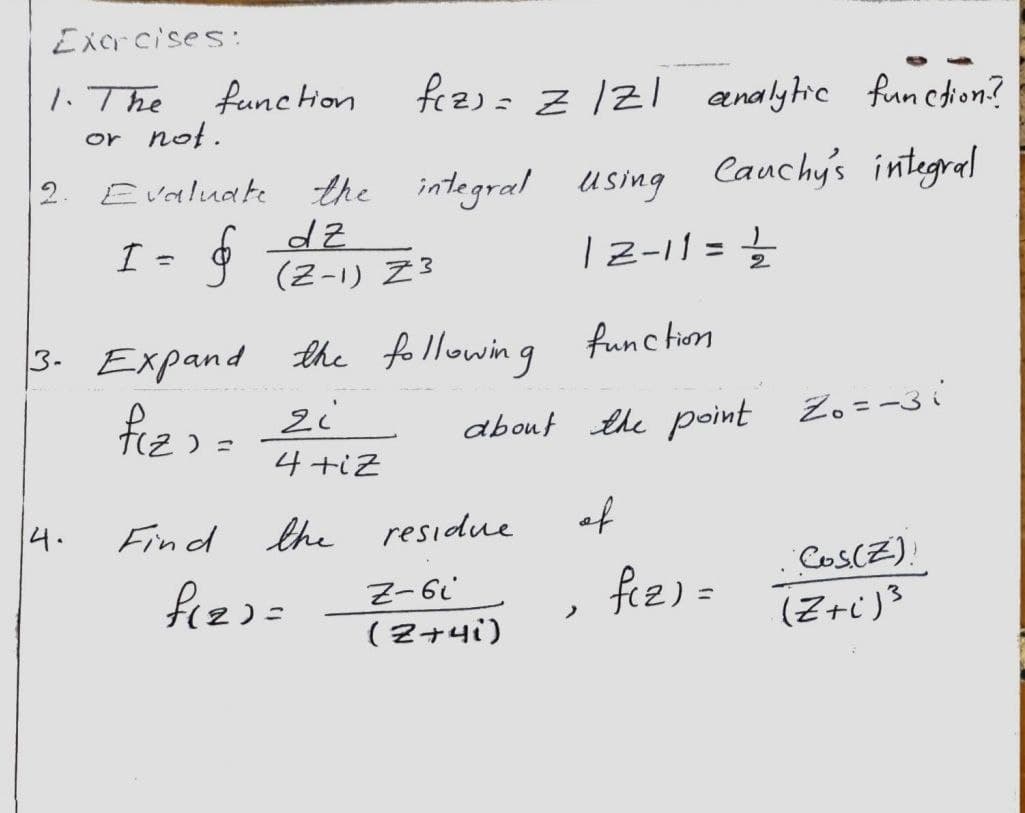 Exercises:
1. The function f(z) = z |z| analytic function?
or not.
2. Evaluate the integral using Cauchy's integral
I = ∮ dz / (z-1) z³ |z-1| = 1/2
3- Expand the following function
f(z) = 2i / 4+iz about the point z₀ = -3i
4. Find the residue of
f(z) = z-6i / (z+4i) , f(z) = Cos(z) / (z+i)³